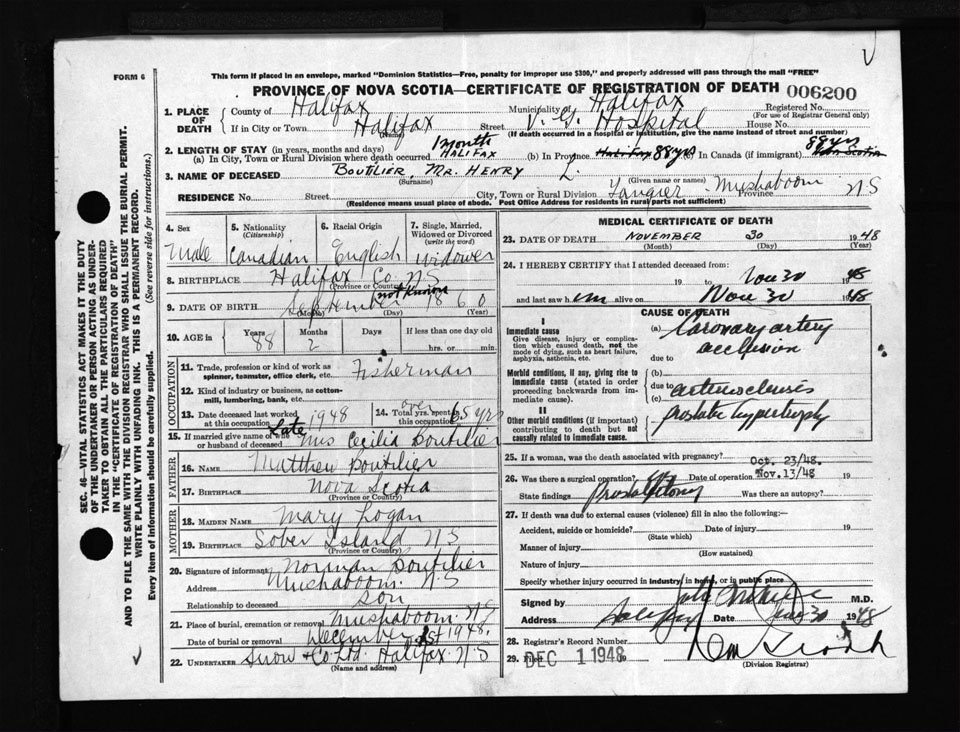 FORM 6
This form if placed in an envelope, marked "Dominion Statistics—Free, penalty for improper use $300," and properly addressed will pass through the mail "FREE"
PROVINCE OF NOVA SCOTIA—CERTIFICATE OF REGISTRATION OF DEATH 006200
1. PLACE OF DEATH County of Halifax Municipality of Halifax Registered No.
(For use of Registrar General only)
If in City or Town Halifax Street V. G. Hospital House No.
(Name) (If death occurred in a hospital or institution, give the name instead of street and number)
2. LENGTH OF STAY (in years, months and days) 1 month 88 yrs
(a) In City, Town or Rural Division where death occurred HALIFAX (b) In Province Halifax 88 yrs (c) In Canada (if immigrant) Nova Scotia
3. NAME OF DECEASED BOUTILIER, MR. HENRY L.
(Surname) (Given name or names)
RESIDENCE No. Street City, Town or Rural Division Tangier - Mushaboom Province N S
(Residence means usual place of abode. Post Office Address for residents in rural parts not sufficient)
4. Sex 5. Nationality (Citizenship) 6. Racial Origin 7. Single, Married, Widowed or Divorced (write the word)
Male Canadian English Widower
8. BIRTHPLACE Halifax Co. N S
(Province or Country)
9. DATE OF BIRTH September not known 1860
(Month) (Day) (Year)
10. AGE in Years Months Days If less than one day old
88 2 hrs. or min.
OCCUPATION
11. Trade, profession or kind of work as spinner, teamster, office clerk, etc. Fisherman
12. Kind of industry or business, as cotton-mill, lumbering, bank, etc.
13. Date deceased last worked at this occupation 1948 14. Total yrs. spent in this occupation over 65 yrs
15. If married give name of wife or husband of deceased Late Mrs Cecilia Boutilier
FATHER
16. NAME Matthew Boutilier
17. BIRTHPLACE Nova Scotia
(Province or Country)
MOTHER
18. MAIDEN NAME Mary Logan
19. BIRTHPLACE Sober Island N S
(Province or Country)
20. Signature of informant Norman Boutilier
Address Mushaboom. N S
Relationship to deceased Son
21. Place of burial, cremation or removal Mushaboom. N S
Date of burial or removal December 1st 1948.
22. UNDERTAKER Snow & Co. Ltd. Halifax N S
(Name and address)
MEDICAL CERTIFICATE OF DEATH
23. DATE OF DEATH NOVEMBER 30 1948
(Month) (Day) (Year)
24. I HEREBY CERTIFY that I attended deceased from:
to Nov 30 1948
and last saw him alive on Nov 30 1948
CAUSE OF DEATH
I
Immediate cause
Give disease, injury or complication which caused death, not the mode of dying, such as heart failure, asphyxia, asthenia, etc.
(a) Coronary artery occlusion
due to
Morbid conditions, if any, giving rise to immediate cause (stated in order proceeding backwards from immediate cause).
(b)
due to arteriosclerosis
(c) prostatic hypertrophy
II
Other morbid conditions (if important) contributing to death but not causally related to immediate cause.
25. If a woman, was the death associated with pregnancy?
Oct. 23/48.
26. Was there a surgical operation? Date of operation Nov.13/48 19
State findings Was there an autopsy?
27. If death was due to external causes (violence) fill in also the following:
Accident, suicide or homicide? Date of injury 19
(State which)
Manner of injury
(How sustained)
Nature of injury
Specify whether injury occurred in industry, in home, or in public place
Signed by M.D.
Address Halifax Date Nov 30 1948
28. Registrar's Record Number
29. Filed DEC 1 1948 19
(Division Registrar)
SEC. 46—VITAL STATISTICS ACT MAKES IT THE DUTY
OF THE UNDERTAKER OR PERSON ACTING AS UNDER-
TAKER TO OBTAIN ALL THE PARTICULARS REQUIRED
IN THE "CERTIFICATE OF REGISTRATION OF DEATH"
AND TO FILE THE SAME WITH THE DIVISION REGISTRAR WHO SHALL ISSUE THE BURIAL PERMIT.
WRITE PLAINLY WITH UNFADING INK. THIS IS A PERMANENT RECORD.
Every item of information should be carefully supplied. (See reverse side for instructions.)